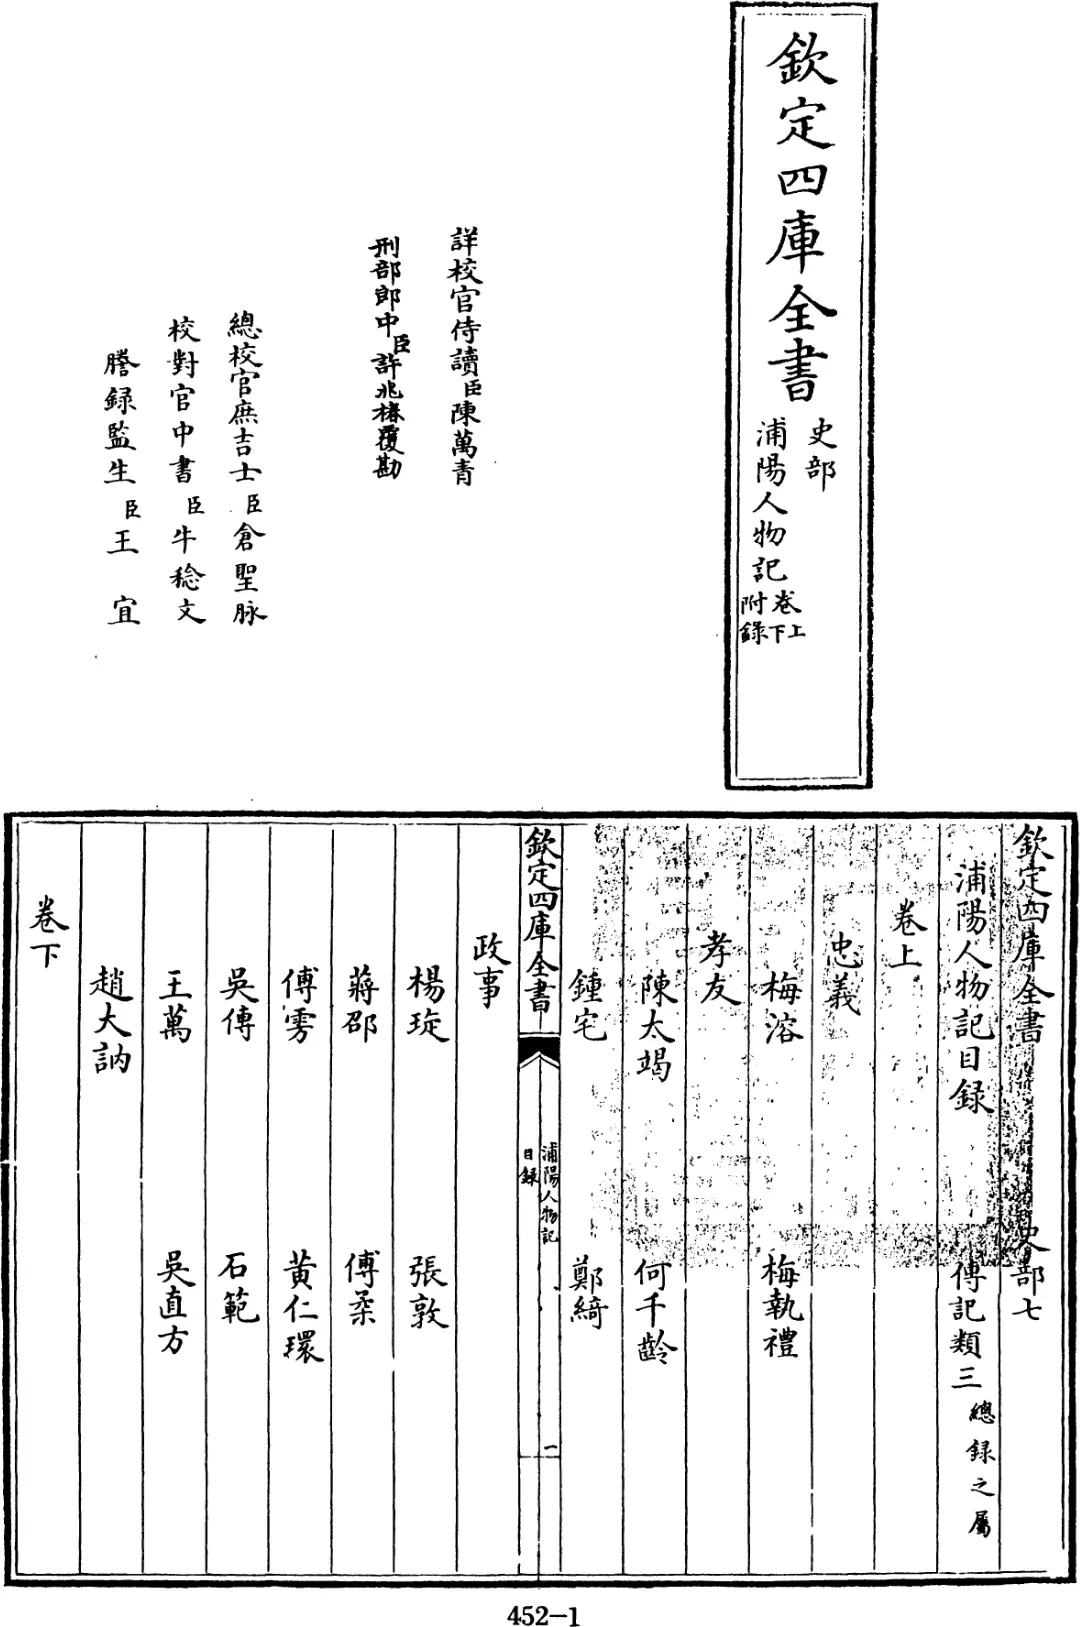 欽定四庫全書
史部
浦陽人物記
卷上
下
附錄
詳校官侍讀臣陳萬青
刑部郎中臣許兆椿覆勘
總校官庶吉士臣倉聖脉
校對官中書臣牛稔文
謄錄監生臣王宜
欽定四庫全書
史部七
浦陽人物記目録
傳記類三
總録之屬
卷上
忠義
梅溶
梅執禮
孝友
陳太竭
何千齡
鍾宅
鄭綺
欽定四庫全書
浦陽人物記
目録
一
政事
楊璇
張敦
蔣邵
傅柔
傅雱
黃仁環
吳傳
石範
王萬
吳直方
趙大訥
卷下
452-1